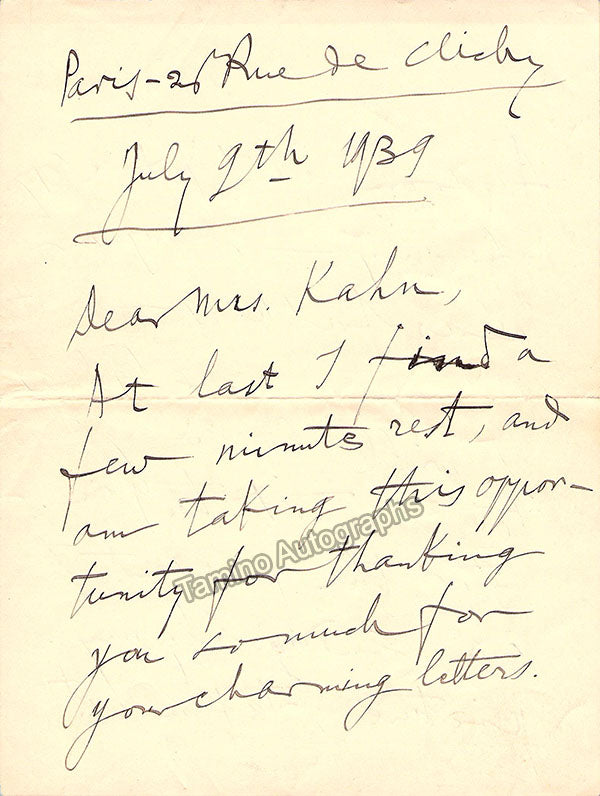 Paris - 28 Rue de Clichy
July 9th 1939
Dear Mrs. Kahn,
At last I find a
few minute rest, and
am taking this oppor-
tunity for thanking
you so much for
your charming letters.
Tamino Autographs